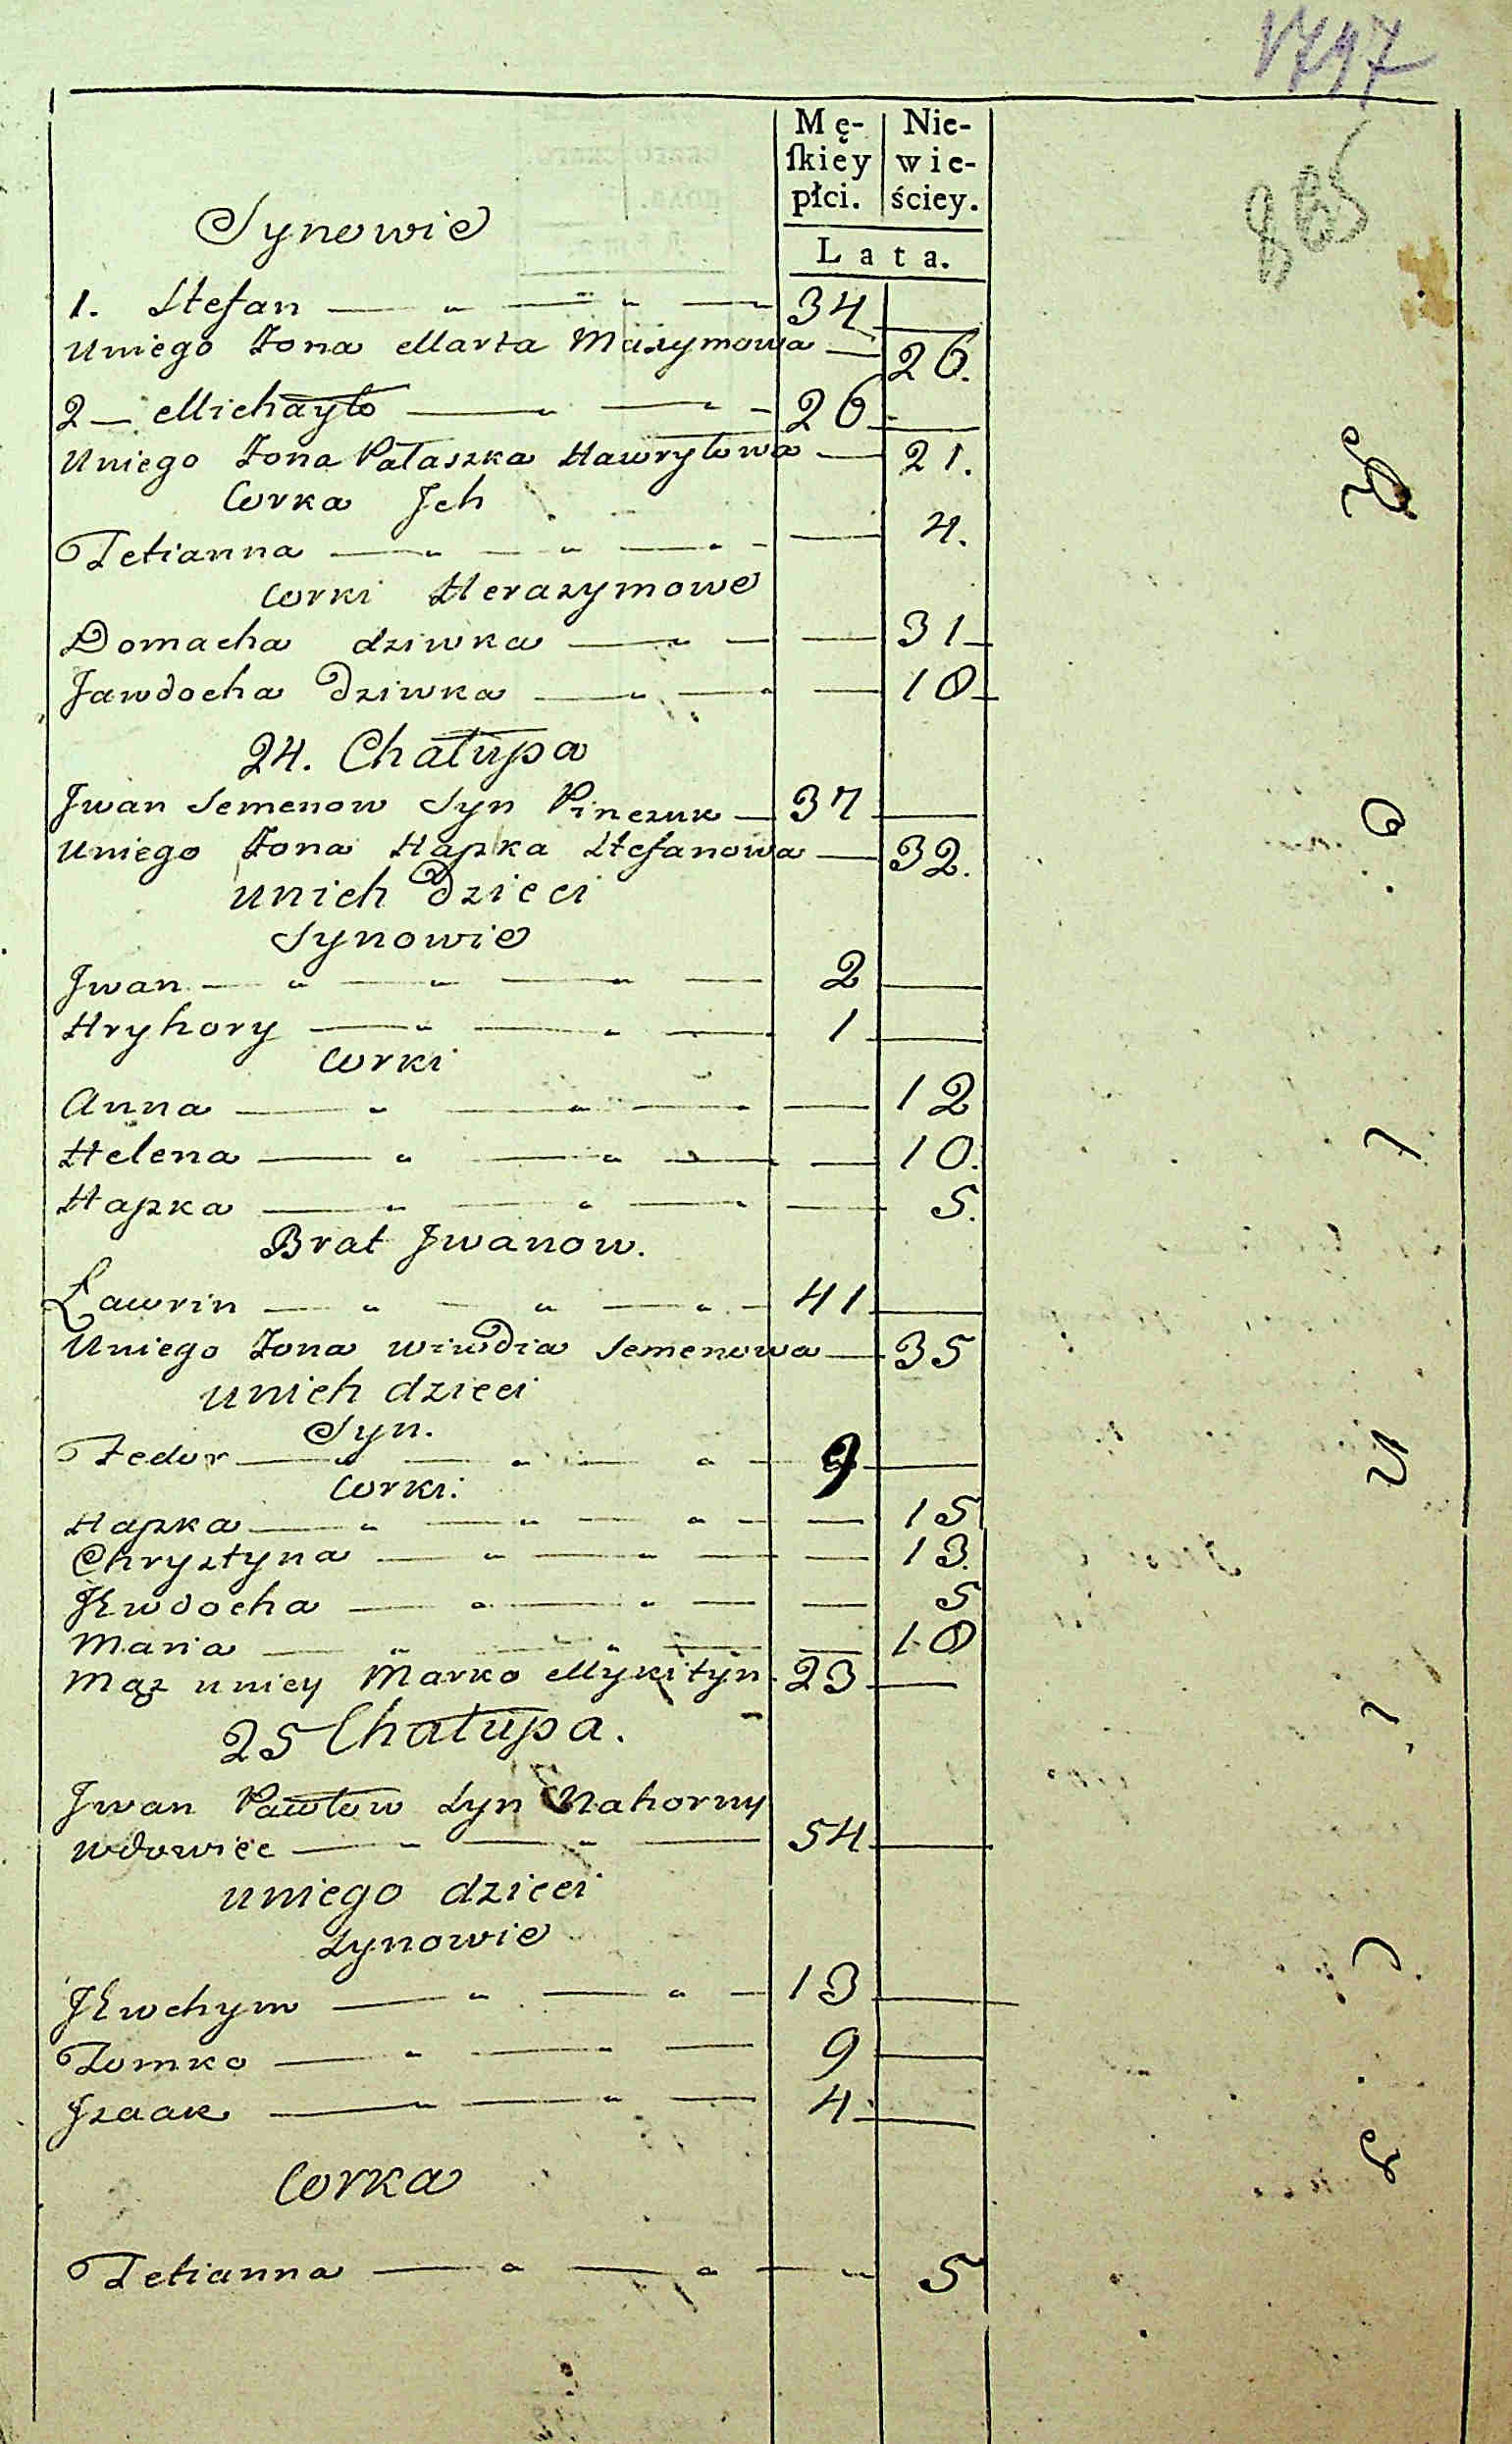 1797
865
Mę- Nie-
ſkiey wie-
płci. ściey.
Lata.
Synowie
1. Stefan — „ — „ — 34 —
Uniego Zona Marta Maxymowa — 26.
2 — Michayło — „ — „ — 26 —
Uniego Zona Pałaszka Hawryłowa — 21.
Corka Jch
Tetianna — „ — „ — „ — — 4.
Corki Herazymowe
Domacha dziwka — „ — — 31 —
Jawdocha dziwka — „ — „ — 18 —
24. Chałupa
Jwan Semenow Syn Pinczuk — 37 —
Uniego Zona Hapka Stefanowa — 32.
unich dzieci
Synowie
Jwan — „ — „ — „ — 2 —
Hryhory — „ — „ — 1 —
Corki
Anna — „ — „ — „ — 12
Helena — „ — „ — — 10.
Hapka — „ — „ — „ — 5.
Brat Jwanow.
Ławrin — „ — „ — „ — 41 —
Uniego Zona Wiwdia Semenowa — 35
unich dzieci
Syn.
Fedor — „ — „ — „ — 9 —
Corki.
Hapka — „ — „ — „ — — 15
Chrystyna — „ — „ — — 13.
Jewdocha — „ — „ — — 5
Maria — „ — „ — — 18
Mąz uniey Marko Mykityn 23 —
25 Chałupa.
Jwan Pawłow Syn Nahorny
wdowiec — „ — „ — 54 —
uniego dzieci
Synowie
Jewchym — „ — „ — 13 —
Tomko — „ — „ — 9 —
Jzaak — „ — „ — 4 —
Corka
Tetianna — „ — „ — „ 5